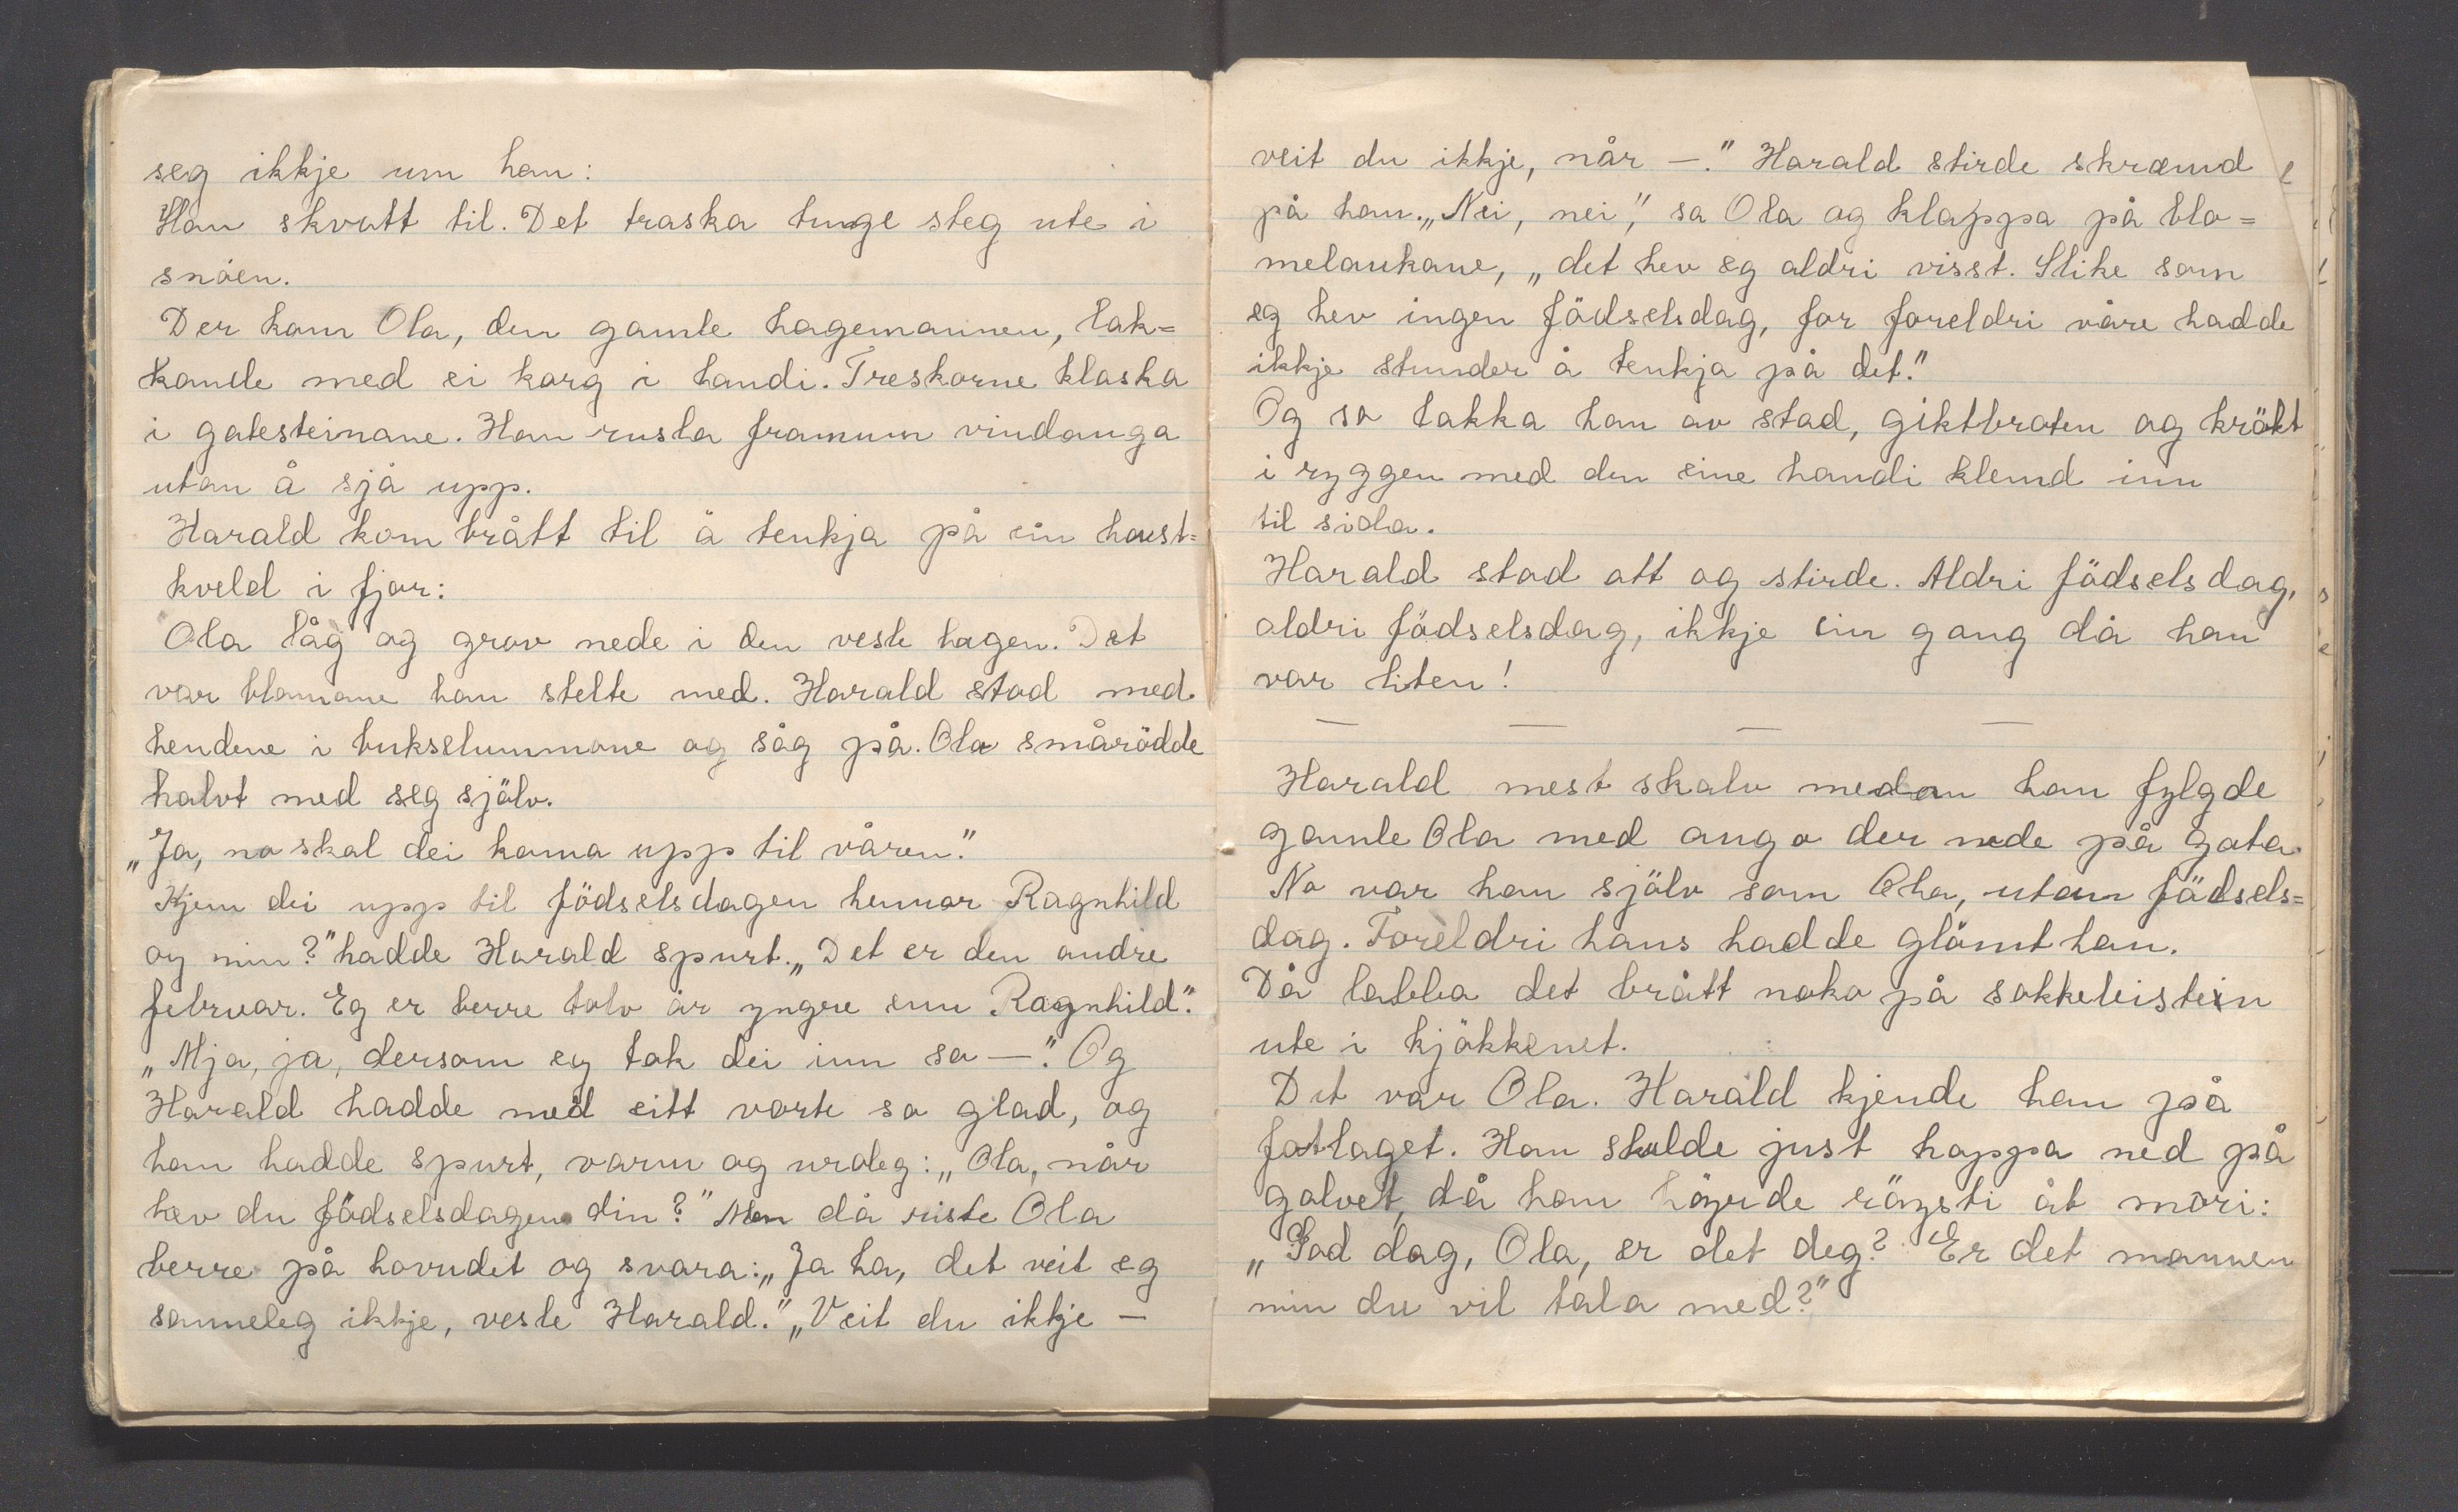 seg ikkje um han:
Han skvatt til. Det traska tunge steg ute i
snöen.
Der kom Ola, den gamle hagemannen, lak=
kande med ei korg i handi. Treskorne klaska
i gatesteinane. Han rusla framum vindauga
utan å sjå upp.
Harald kom brått til å tenkja på ein haust=
kveld i fjor:
Ola låg og grov nede i den vesle hagen. Det
var blomane han stelte med. Harald stod med
hendene i bukselummone og såg på. Ola smårödde
halvt med seg själv.
„Ja, no skal dei koma upp til våren."
Kjem dei upp til födselsdagen hennar Ragnhild
og min?" hadde Harald spurt. „Det er den andre
februar. Eg er berre tolv år yngre enn Ragnhild."
„Mja, ja, dersom eg tok dei inn so —." Og
Harald hadde med eitt vorte so glad, og
han hadde spurt, varm og uroleg: „Ola, når
hev du födselsdagen din?" Men då riste Ola
berre på hovudet og svara: „Ja ha, det veit eg
sanneleg ikkje, vesle Harald." „Veit du ikkje —
veit du ikkje, når —." Harald stirde skræmd
på han. „Nei, nei", sa Ola og klappa på blo=
melaukane, „det hev eg aldri visst. Slike som
eg hev ingen födselsdag, for foreldri våre hadde
ikkje stunder å tenkja på det."
Og so lakka han av stad, giktbroten og krökt
i ryggen med den eine handi klemd inn
til sida.
Harald stod att og stirde. Aldri födselsdag,
aldri födselsdag, ikkje ein gong då han
var liten!
— — — —
Harald mest skalv medan han fylgde
gamle Ola med augo der nede på gata.
No var han själv som Ola, utan födsels=
dag. Foreldri hans hadde glömt han.
Då labba det brått noko på sokkeleistein
ute i kjökkenet.
Det var Ola. Harald kjende han på
fotlaget. Han skulde just hoppa ned på
golvet, då han höyrde röysti åt mori:
„God dag, Ola, er det deg? Er det mannen
min du vil tala med?"